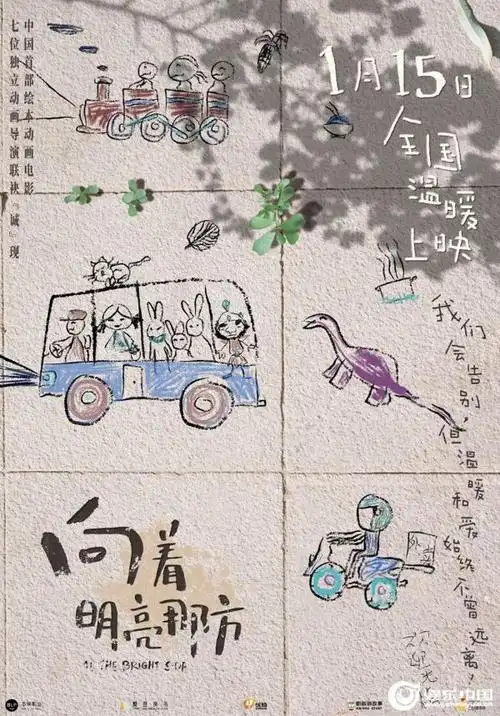 中国首部绘本动画电影
七位独立动画导演联袂『诚』现
1月15日
全国
温暖
上映
我们会告别，但温暖和爱始终不曾远离，
外卖
向着
明亮那方
THE BRIGHT
优酷
娱乐中国